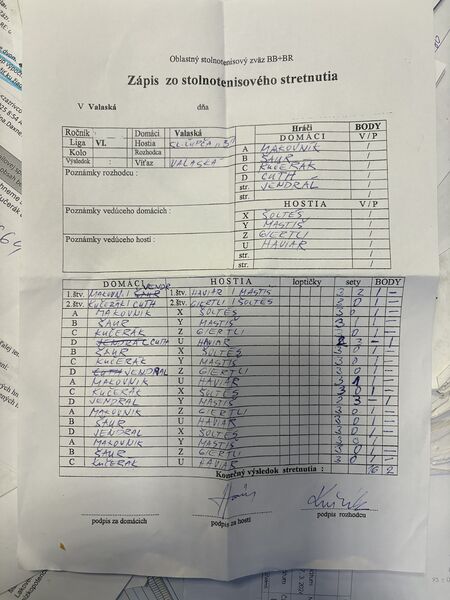 Oblastný stolnotenisový zväz BB+BR
Zápis zo stolnotenisového stretnutia
V Valaská dňa
Ročník : Domáci Valaská
Liga VI. Hostia SL. ĽUPČA
Kolo Rozhodca
Výsledok : Víťaz VALASKÁ
Poznámky rozhodcu :
Poznámky vedúceho domácich :
Poznámky vedúceho hostí :
Hráči BODY
DOMÁCI V/P
A MAKOVNÍK /
B ŠAUR /
C KUČERÁK /
D CUTH /
str. JENDRÁL /
str. /
HOSTIA V/P
X ŠOLTES /
Y MASTIŠ /
Z GIERTLI /
U HAVIAR /
str. /
DOMÁCI HOSTIA loptičky sety BODY
1.štv. MAKOVNÍ 1.štv. HAVIAR / MASTIS 3 2 1 –
2.štv. KUČERÁK / CUTH 2.štv. GIERTLI / ŠOLTES 3 0 1 –
A MAKOVNIK X ŠOLTES 3 0 1 –
B ŠAUR Y MASTIŠ 3 1 –
C KUČERÁK Z GIERTLI 3 0 1 –
D CUTH U HAVIAR 2 3 – 1
B ŠAUR X ŠOLTES 3 0 1 –
C KUČERÁK Y MASTIŠ 3 0 1 –
D JENDRAL Z GIERTLI 3 0 1 –
A MAKOVNIK U HAVIAR 3 1 1 –
C KUČERÁK X ŠOLTES 3 0 1 –
D JENDRAL Y MASTIŠ 3 – 1
A MAKOVNIK Z GIERTLI 3 0 1 –
B ŠAUR U HAVIAR 3 0 1 –
D JENDRAL X ŠOLTES 3 0 1 –
A MAKOVNIK Y MASTIŠ 3 0 1 –
B ŠAUR Z GIERTLI 3 0 1 –
C KUČERÁK U HAVIAR 3 0 1 –
Konečný výsledok stretnutia : 16 2
podpis za domácich podpis za hostí podpis rozhodcu